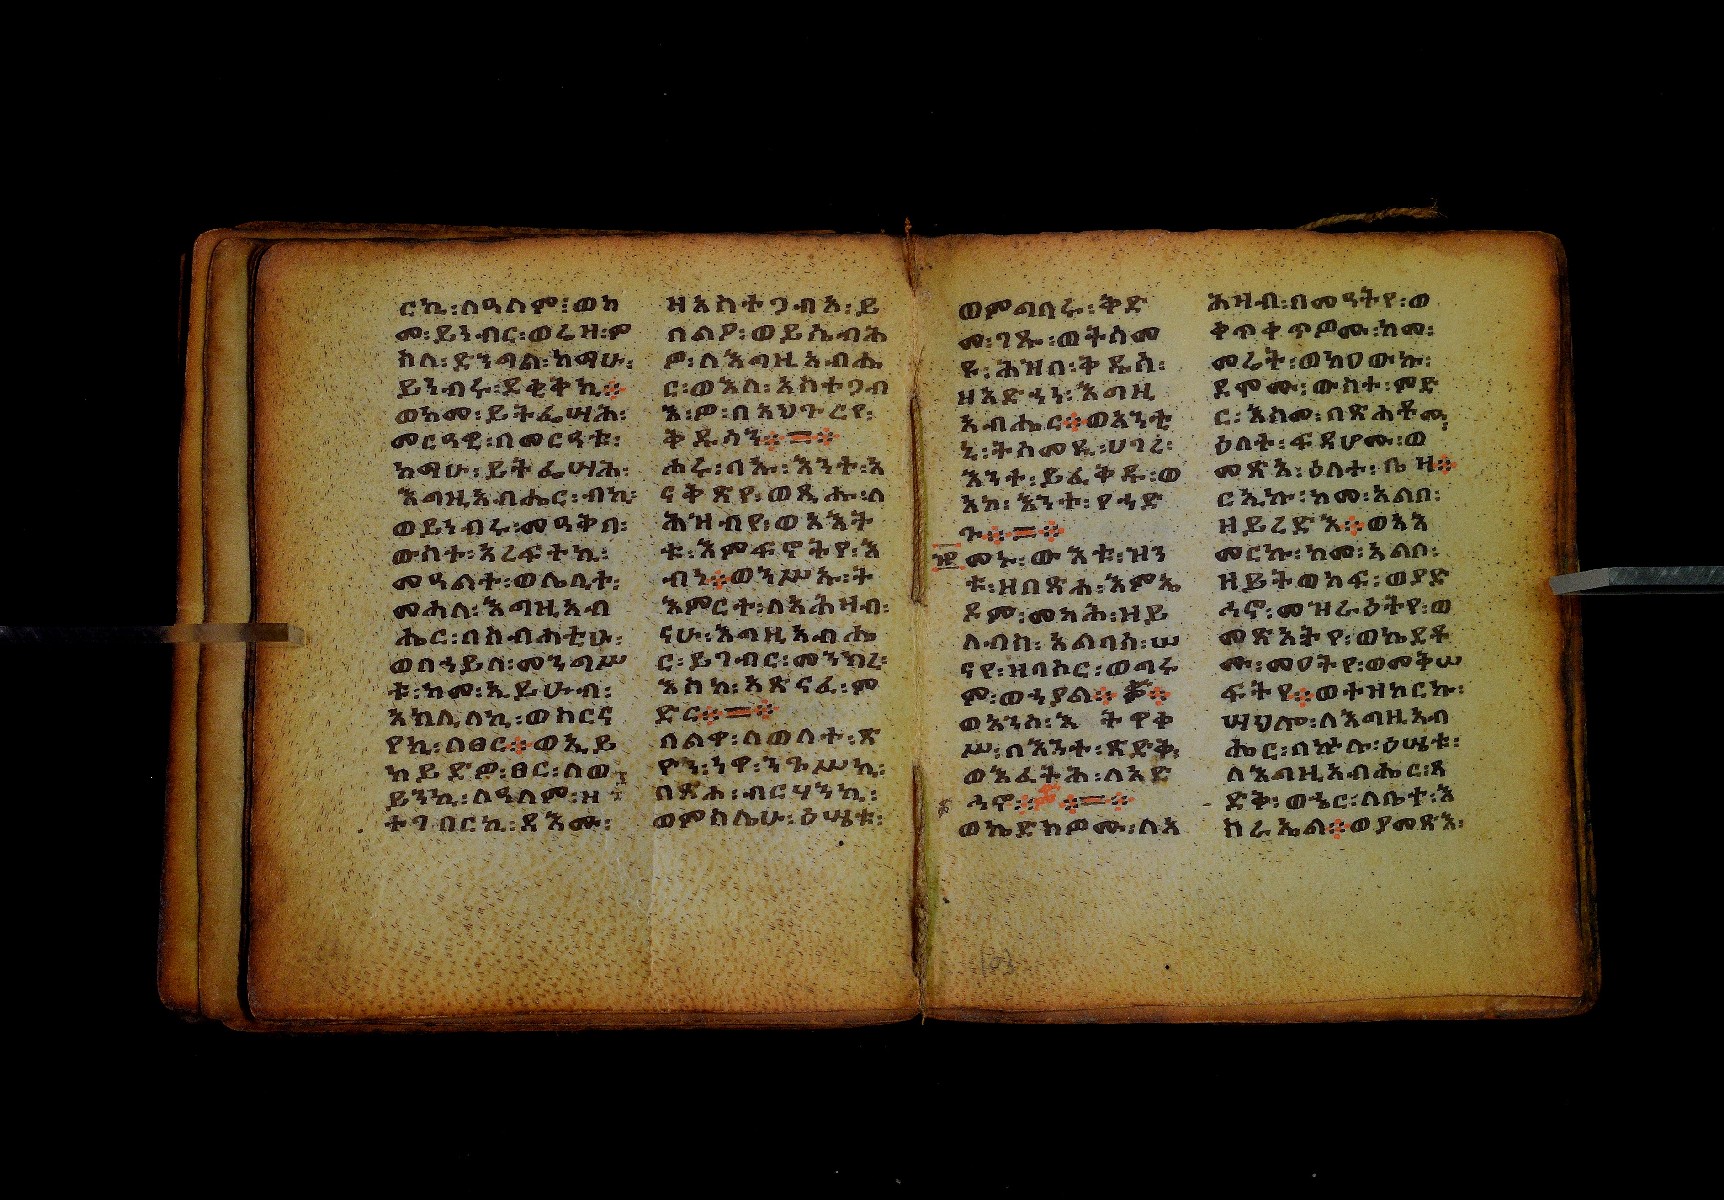 ርኪ፡ለዓለም፡ወከ
መ፡ይነብር፡ወሬዛ፡ም
ስለ፡ድንግል፡ከማሁ፡
ይነብሩ፡ደቂቅኪ።
ወከመ፡ይትፌሣሕ፡
መርዓዊ፡በመርዓቱ፡
ከማሁ፡ይትፌሣሕ፡
እግዚአብሔር፡ብኪ፡
ወይነብሩ፡መዓቅበ፡
ውስተ፡አረፍትኪ፡
መዓልተ፡ወሌሊተ፡
መሐለ፡እግዚአብ
ሔር፡በስብሐቲሁ፡
ወበኀይለ፡መንግሥ
ቱ፡ከመ፡ኢይሁብ፡
እክለ፡ለኪ፡ወከርና
የኪ፡ለፀር።ወኢይ
ከይድዎ፡ፀር፡ለወ
ይንኪ፡ለዓለም፡ዘ
ተገብርኪ፡ዳእሙ፡
ዘአስተጋብአ፡ይ
በልዖ፡ወይሴብሕ
ዎ፡ለእግዚአብሔ
ር፡ወእለ፡አስተጋብ
እ፡ዎ፡በአህጉረየ፡
ቅዱሳን።=።
ሐሩ፡በኡ፡እንተ፡አ
ናቅጽየ፡ወጺሑ፡ለ
ሕዝብየ፡ወአእት
ቱ፡እምፍኖትየ፡እ
ብነ።ወንሥኡ፡ት
እምርተ፡ለአሕዛብ፡
ናሁ፡እግዚአብሔ
ር፡ይገብር፡መንክረ፡
እስከ፡አጽናፈ፡ም
ድር።=።
በልዋ፡ለወለተ፡ጽ
ዮን፡ነዋ፡ንጉሥኪ፡
በጽሐ፡ብርሃንኪ፡
ወምስሌሁ፡ዕሤቱ፡
ወምግባሩ፡ቅድ
መ፡ገጹ፡ወትሰመ
ዩ፡ሕዝበ፡ቅዱስ፡
ዘአድኀነ፡እግዚ
አብሔር።ወአንቲ
ኒ፡ትሰመዪ፡ሀገረ፡
እንተ፡ይፈቅዱ፡ወ
አኮ፡እንተ፡የኀድ
ጉ።=።
መኑ፡ውእቱ፡ዝን
ቱ፡ዘበጽሐ፡እምኤ
ዶም፡መጻሕ፡ዝይ
ለብስ፡አልባስ፡ሠ
ናየ፡ዘባሶር፡ወግሩ
ም፡ወኀያል።
ወአንሰ፡እ ትዋቀ
ሥ፡በእንተ፡ጽድቅ፡
ወእፈትሕ፡ለአድ
ኅኖ።=።
ወኬድክዎሙ፡ለአ
ሕዛብ፡በመዓትየ፡ወ
ቀጥቀጥዎሙ፡ከመ፡
መሬት፡ወከዐውኩ፡
ደሞሙ፡ውስተ፡ምድ
ር፡እስመ፡በጽሐቶሙ
ዕለት፡ፍዳሆሙ፡ወ
መጽአ፡ዕለተ፡ቤዛ።
ርኢኩ፡ከመ፡አልቦ፡
ዘይረድእ።ወአእ
መርኩ፡ከመ፡አልቦ፡
ዘይትወከፍ፡ወያድ
ኅኖ፡መዝራዕትየ፡ወ
መጽአትየ፡ወኬደቶ
ሙ፡መዐትየ፡ወመቅሠ
ፍትየ።ወተዝከርኩ፡
ሣህሎ፡ለእግዚአብ
ሔር፡በኵሉ፡ዕሤቱ፡
ለእግዚአብሔር፡ጻ
ድቅ፡ወኄር፡ለቤተ፡እ
ስራኤል።ወያመጽእ፡